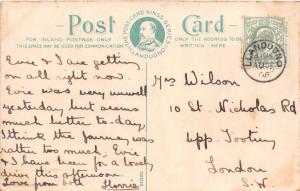 Post Card
FOR INLAND POSTAGE ONLY
THIS SPACE MAY BE USED FOR COMMUNICATION
THE ADDRESS TO BE
WRITTEN HERE.
LLANDUDNO
Evie & I are getting
on all right now.
Evie was very unwell
yesterday but seems
much better to-day,
I think the journey was
rather too much. Evie
& I have been for a lovely
drive this afternoon.
Love from both
Mrs Wilson
10 St. Nicholas Rd
Upp. Tooting
London
S.W.
LLANDUDNO